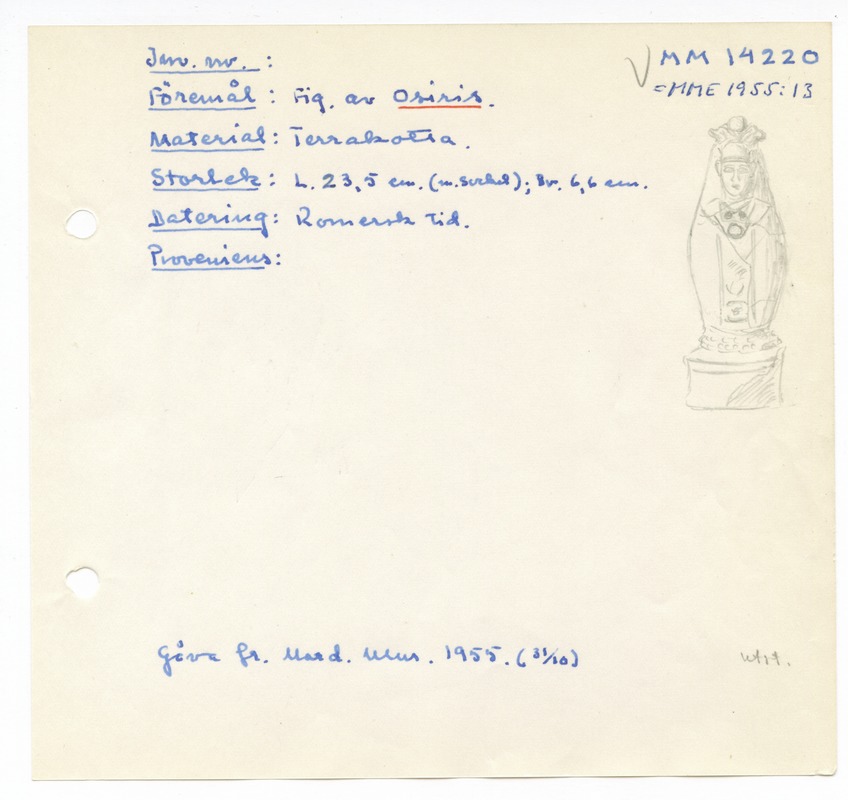 Inv. nr. :
MM 14220
= MME 1955:13
Föremål : Fig. av Osiris.
Material : Terrakotta.
Storlek : L. 23,5 cm. (m. sockel); Br. 6,6 cm.
Datering : Romersk tid.
Proveniens :
Gåva fr. Nord. Mus. 1955. (31/10)